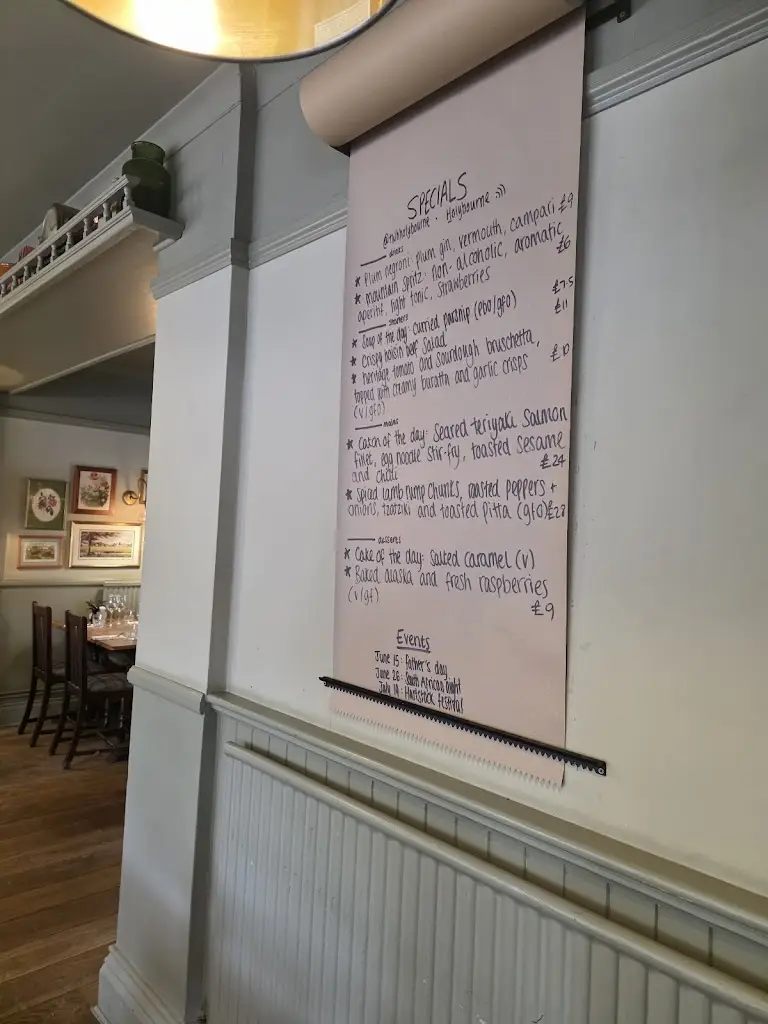 SPECIALS
Holybourne
drinks
* Plum negroni: plum gin, vermouth, campari £9
* mountain spritz: non-alcoholic, aromatic £6
aperitif, light tonic, strawberries
starters
* Soup of the day: curried parsnip (pbo/gfo) £7.5
* Crispy hoisin beef salad £11
* heritage tomato and sourdough bruschetta,
topped with creamy buratta and garlic crisps £10
(v/gfo)
mains
* Catch of the day: Seared teriyaki Salmon
fillet, egg noodle stir-fry, toasted sesame
and chilli £24
* Spiced lamb rump chunks, roasted peppers +
onions, tzatziki and toasted pitta (gfo) £23
desserts
* Cake of the day: Salted caramel (v)
* Baked alaska and fresh raspberries
(v/gf) £9
Events
June 15: Father's day
June 26: South African night
July 19: Hartstock festival